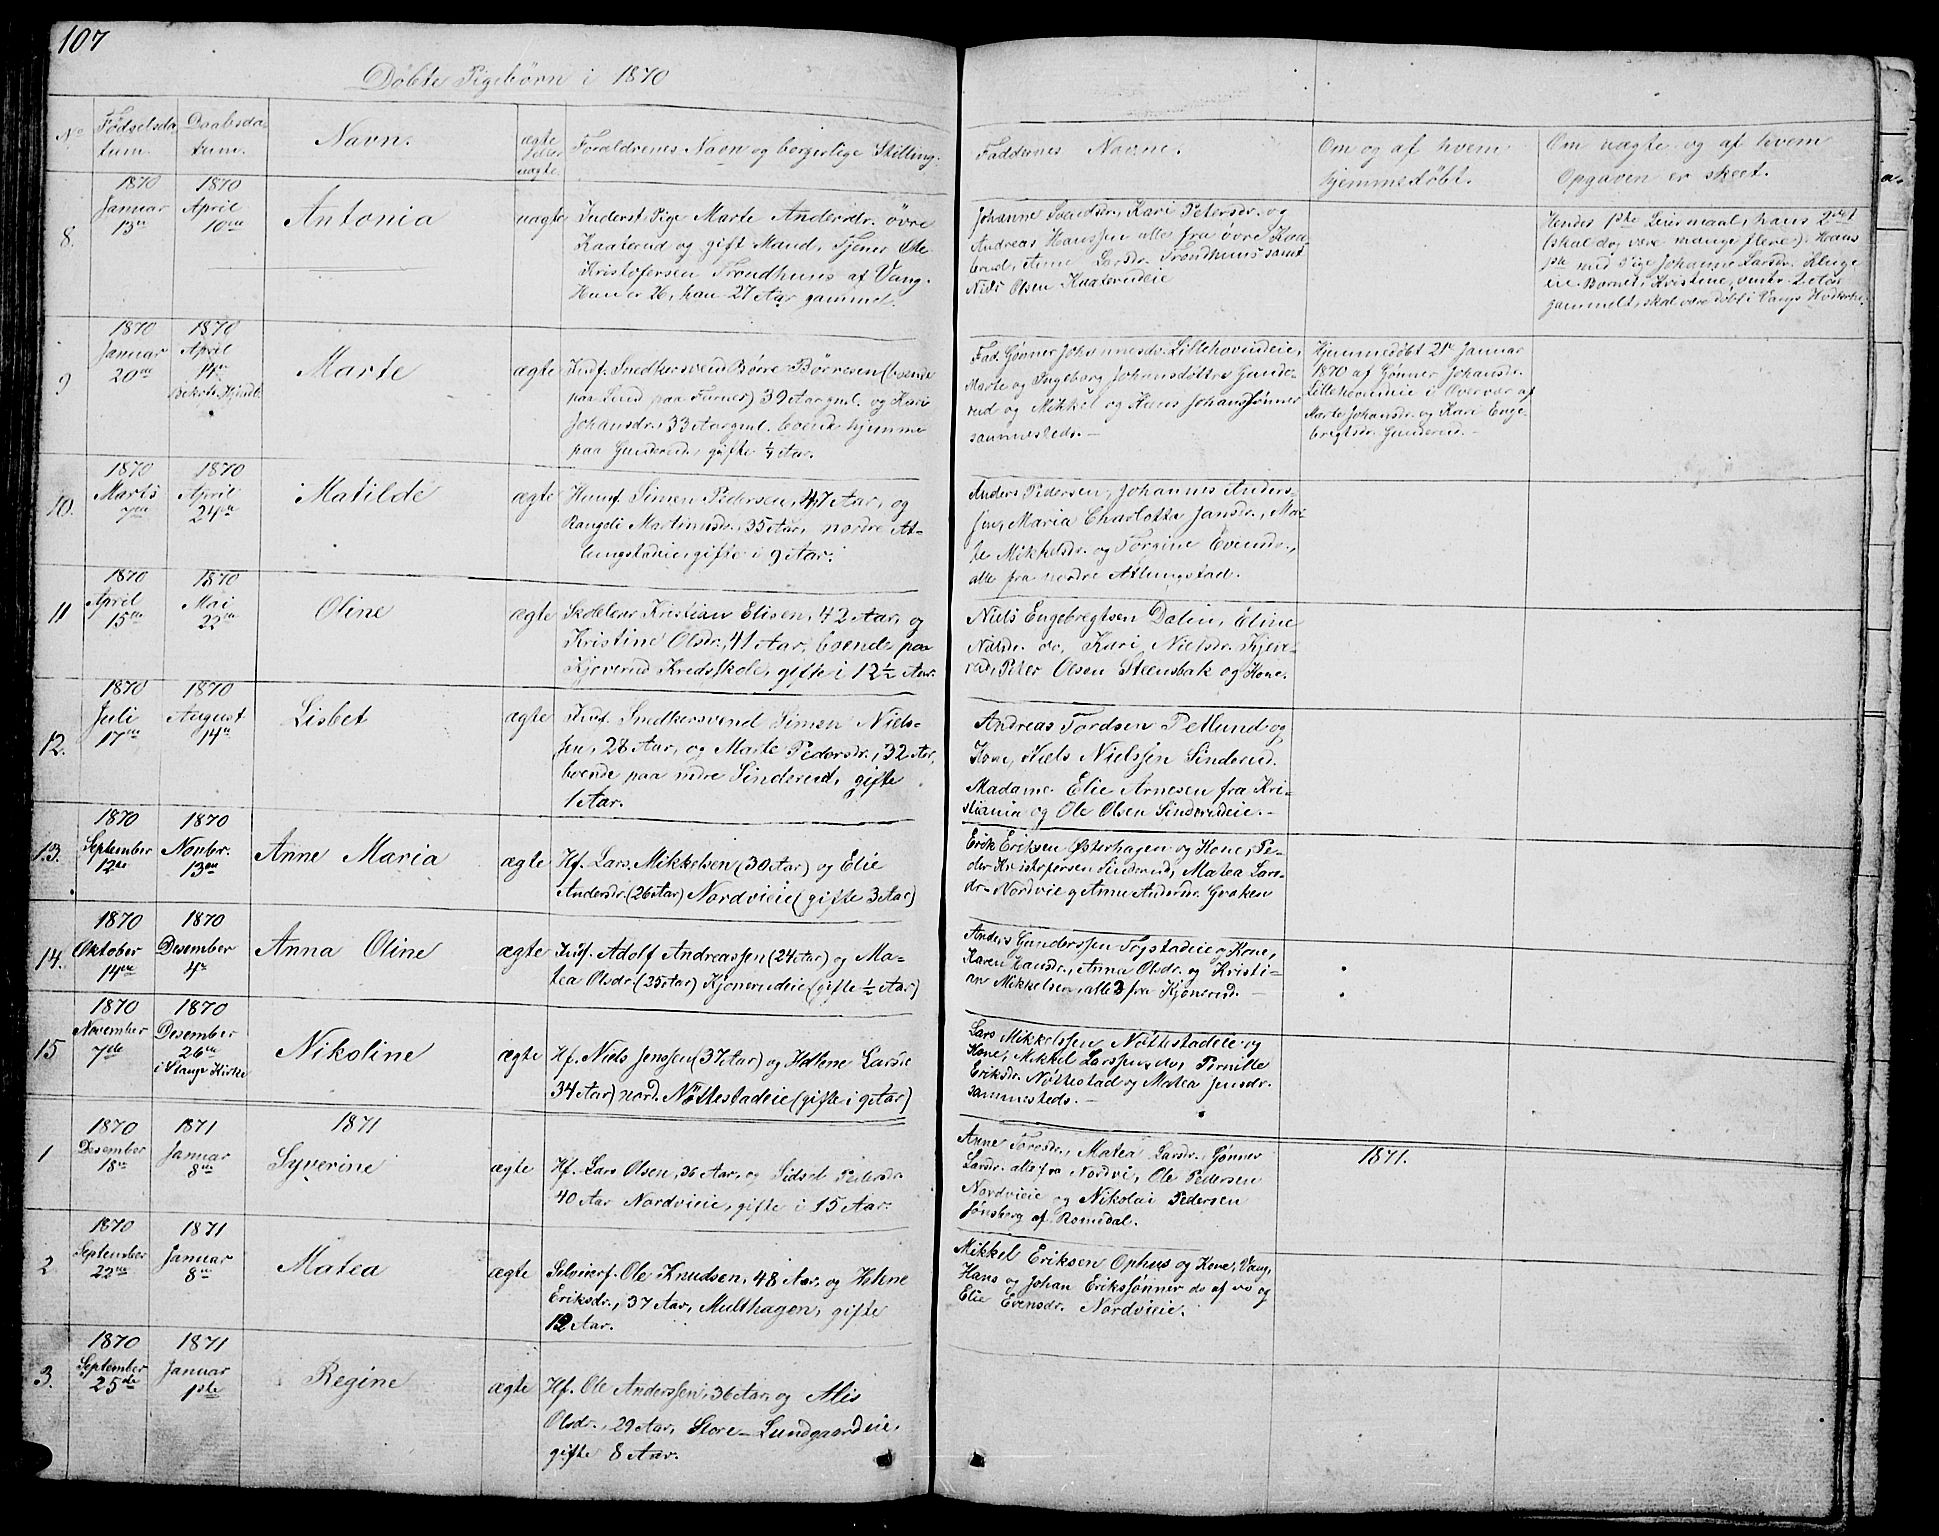 107
Döbte Pigebörn i 1870
No
Födselsda-
tum.
Daabsda-
tum.
Navn.
ægte
eller
uægte
Foraldrenes Navn og borgerlige Stilling.
Faddernes Navne.
Om og af hvem
hjemmedöbt.
Om uægte og af hvem
Opgaven er skeet.
8.
1870
Januar
13de
1870
April
10de
Antonia
uægte
Inderst, Pige Marte Andersdr. övre
Kaaterud og gift Mand, Tjener Ole
Kristofersen Trondhuus af Vang.
Hun er 26, han 27 Aar gammel.
Johanne Svendsdr., Kari Petersdr. og
Andreas Hanssen alle fra övre Kaa-
terud, Anne Larsdr. Trondhuus samt
Niels Olsen Kaaterudeie
Hendes 1ste Leiermaal, hans 2det
(skal dog være mange flere). Hans
1ste med Pige Johanne Larsdr. Kluge
eie Barnet, Kristine, omtr. 2 Aar
gammelt, skal være döbt i Vangs Hovedkirke.
9
1870
Januar
20de
1870
April
14de
Bekr. Hjemd.
Marte
ægte
Indf. Snedkersvend Börre Börresen (boende
paa Lund paa Furnes) 39 Aar gml. og Kari
Johansdr., 33 Aar gml. boende hjemme
paa Gunderud, gifte ¼ Aar.
Fad. Gönner Johannesdr. Lillehovendeie,
Marte og Ingeborg Johansdøttre Gunde-
rud og Mikkel og Hans Johanssønner
sammesteds.—
Hjemmedöbt 21de Januar
1870 af Gønner Johansdr.
Lillehovendeie i Overvær af
Marte Johansdr. og Kari Enge-
bregtsdr. Gunderud.—
10.
1870
Marts
7de
1870
April
24de
Matilde
ægte
Huusf. Simen Pedersen, 47 Aar, og
Rangdi Martinusdr., 35 Aar, nordre At-
lungstadeie, gifte i 9 Aar.
Anders Pedersen, Johannes Anders-
sen, Maria Charlotta Jansdr., Mar-
te Mikkelsdr. og Torgine Evensdr.,
alle fra nordre Atlungstad.
11
1870
April
15de
1870
Mai
22de
Oline
ægte
Skolelærer Kristian Elisen, 42 Aar, og
Kristine Olsdr., 41 Aar, boende paa
Kjoverud Kredsskole, gifte i 12½ Aar.
Niels Engebregtsen Dalin, Eline
Nilsdr. do, Kari Nielsdr. Kjøve-
rud, Peter Olsen Steensbak og Kone.
12.
1870
Juli
17de
1870
August
14de
Lisbet
ægte
Indf. Snedkersvend Simen Niels-
sen, 28 Aar, og Marte Pedersdr., 32 Aar,
boende paa nedre Sinderud, gifte
1 Aar.
Andreas Tordsen Petlund og
Kone, Niels Nielssen Sinderud.
Madame Elie Arnesen fra Kri-
stiania og Ole Olsen Sinderudeie.—
13.
1870
September
12te
1870
Novbr.
13de
Anne Maria
ægte
Hf. Lars Mikkelsen (30 Aar) og Elie
Andersdr (26 Aar) Nordvieie (gifte 3 Aar)
Erik Eriksen Østerhagen og Kone, Pe-
der Kristofersen Sinderud, Matea Lars-
dr. Nordvie og Anne Andersdr. Graken
14.
1870
Oktober
14de
1870
Desember
4de
Anna Oline
ægte
Indf. Adolf Andreassen (24 Aar) og Ma-
tea Olsdr. (25 Aar) Kjonerudeie (gifte ½ Aar)
Anders Gunderssen Frystadeie og Kone,
Karen Hansdr., Anna Olsdr. og Kristi-
an Mikkelsen, alle 3 fra Kjonerud.—
15
1870
November
7de
1870
Desember
26de
i Stange Kirke
Nikoline
ægte
Hf. Niels Jenssen (37 Aar) og Helene Larsdr
34 Aar) nord. Nøttestadeie (gifte i 9 Aar)
Lars Mikkelssen Nøttestadeie og
Kone, Mikkel Larssen do, Pernille
Eriksdr. Nøttestad og Matea Jensdr.
sammesteds.—
1871
1871.
1
1870
Desember
18de
1871
Januar
8de
Syverine
ægte
Hf. Lars Olsen, 36 Aar, og Sidsel Pedersdr.
40 Aar Nordvieie, gifte i 15 Aar.
Anne Toresdr., Matea Larsdr. Gønner
Larsdr. alle fra Nordvi, Ole Pedersen
Nordvieie og Nikolai Pedersen
Jønsberg af Romedal.
2
1870
September
22de
1871
Januar
8de
Matea
ægte
Selveierf. Ole Knudsen, 48 Aar, og Helene
Eriksdr., 37 Aar, Multhagen, gifte
12 Aar.
Mikkel Eriksen Ophus og Kone, Vang,
Hans og Johan Erikssønner do af do og
Elie Evensdr. Nordvieie.
3.
1870
September
25de
1871
Januar
1ste
Regine
ægte
Hf. Ole Anderssen, 36 Aar, og Alis
Olsdr., 29 Aar, Store-Lundgaardeie,
gifte 8 Aar.